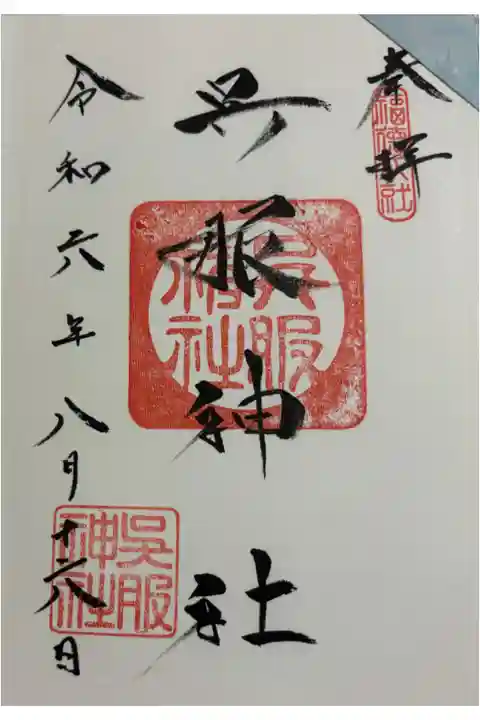 奉拝
呉服神社
呉服
神社
令和六年八月十六日
呉服
神社